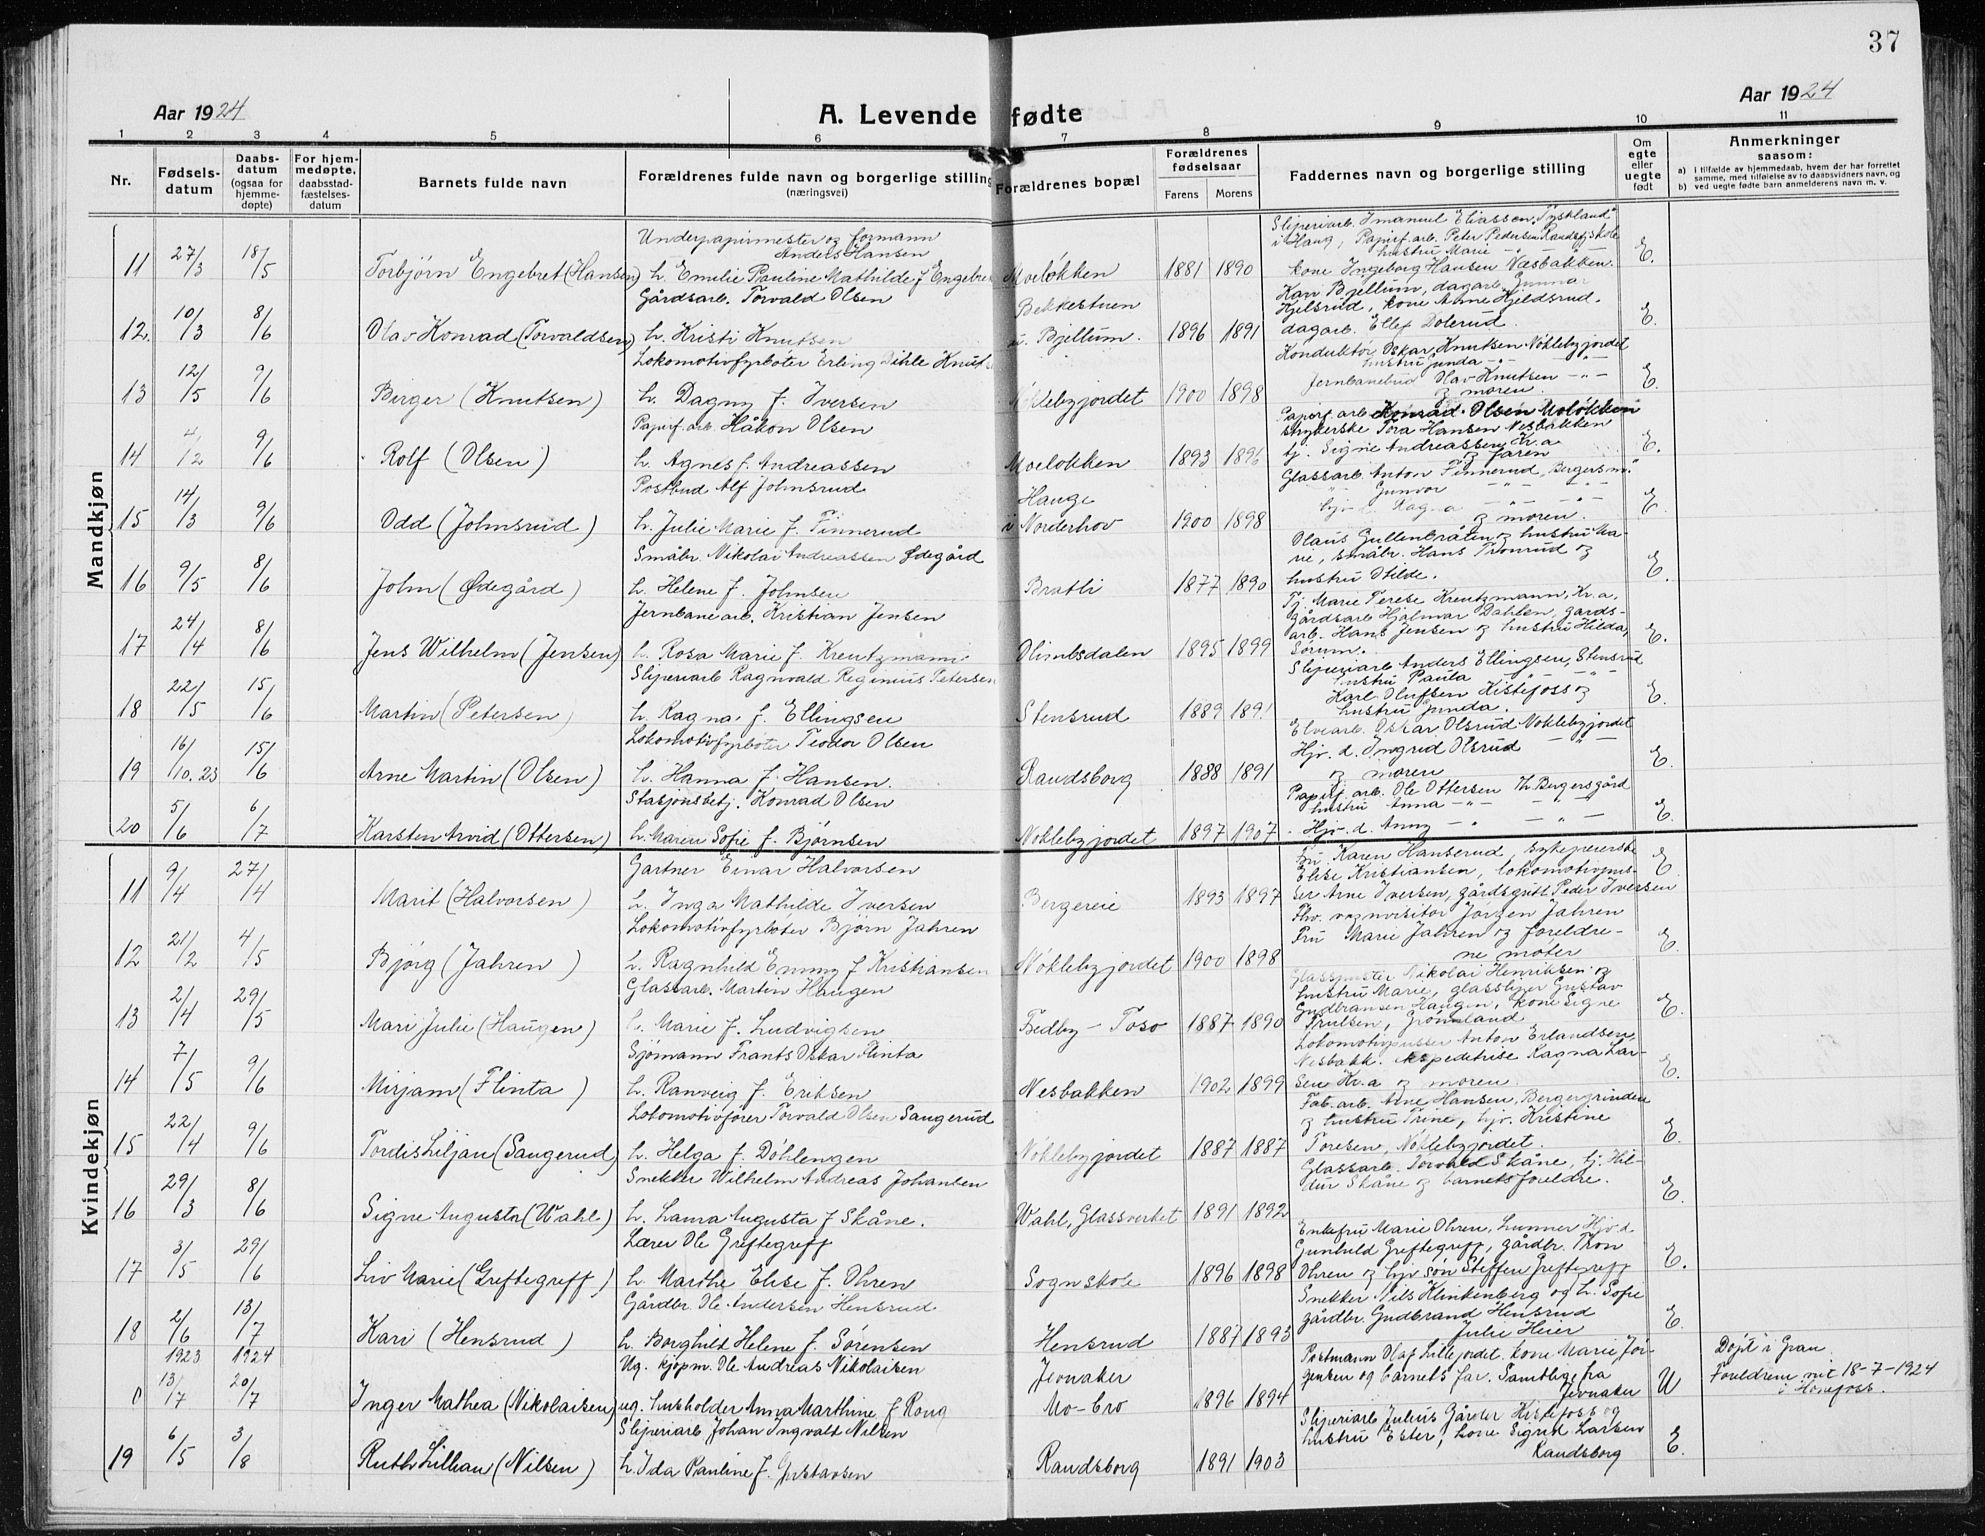 37
Aar 1924
A. Levende fødte
Aar 1924
1 2 3 4 5 6 7 8 9 10 11
Nr.
Fødsels-datum
Daabs-datum (ogsaa for hjemme-døpte)
For hjem-medøpte, daabsstad-fæstelses-datum
Barnets fulde navn
Forældrenes fulde navn og borgerlige stilling (næringsvei)
Forældrenes bopæl
Forældrenes fødselsaar
Farens Morens
Faddernes navn og borgerlige stilling
Om egte eller uegte født
Anmerkninger saasom:
a) i tilfælde av hjemmedaab, hvem der har forrettet samme, med tilføielse av to daabsvidners navn, og
b) ved uegte fødte barn anmelderens navn m. v.
Mandkjøn
Underpapirmester og formann Anders Hansen
Sliperiarb. Imanuel Eliassen, Tyskland
i Haug, Papirf. arb. Peter Pedersen Randsfj skole
hustru Marie
11 27/3 18/5 Torbjørn Engebret (Hansen) h. Emelie Pauline Mathilde f Engebret Moeløkken 1881 1890 kone Ingeborg Hansen Næsbakken. E.
Gårdsarb. Torvald Olsen Bekkestuen Kari Bjellum, dagarb. Gunnar
Hjelsrud, kone Anne Hjeldsrud.
12. 10/3 8/6 Olav Konrad (Torvaldsen) h. Kristi Knutsen u. Bjellum. 1896 1891 dagarb. Ellef Dolerud. E.
Lokomotivfyrbøter Erling Bihle Knuts Konduktør Oskar Knutsen Nøklebyjordet
hustru Gunda -"- -"-
Jernbanebud Olav Knutsen -"-
13 12/5 9/6 Birger (Knutsen) h. Dagny f. Iversen Nøklebyjordet 1900 1898 og moren. E.
Papirf. arb. Håkon Olsen Papirf. arb. Konrad Olsen Moløkken
strykerske Tora Hansen Nesbakken
tj. Signe Andreassen Kr.a
14 4/2 9/6 Rolf (Olsen) h. Agnes f. Andreassen Moeløkken 1893 1896 og faren E.
Postbud Alf Johnsrud Hauge Glassarb. Anton Finnerud, Bergersm.
Gunvor -"- -"-
hjv. Ragna -"- -"-
15 14/3 9/6 Odd (Johnsrud) h. Julie Marie f. Finnerud i Norderhov 1900 1898 og moren. E
Småbr. Nikolai Andreassen Ødegård Olaus Gullenbråten og hustru Ma-
rie, småbr. Hans Tronrud og
16 9/5 8/6 John (Ødegård) h. Helene f. Johnsen Bratli 1877 1890 hustru Otilde. E.
Jernbanearb. Kristian Jensen Tj. Marie Terese Kreutzmann, Kr.a,
gårdsarb Hjalmar Dahlen, gårds-
arb. Hans Jensen og hustru Hilda,
17 24/4 8/6 Jens Wilhelm (Jensen) h. Rosa Marie f. Kreutzmann Olimbsdalen 1895 1899 Sørum. E.
Sliperiarb Ragnvald Reginius Petersen Sliperiarb Anders Ellingsen, Stensrud
hustru Paula -"- -"-
Karl Olufsen Kistefoss og
18 22/5 15/6 Martin (Petersen) h. Ragna f. Ellingsen Stensrud 1889 1891 hustru Gunda. E.
Lokomotivfyrbøter Teodor Olsen Elvearb. Oskar Olsrud Nøklebyjordet
Hjv. d. Ingrid Olsrud -"-
19 16/10.23 15/6 Arne Martin (Olsen) h. Hanna f. Hansen. Randsborg 1888 1891 og moren E.
Stasjonsbetj. Konrad Olsen Papirf. arb. Ole Ottersen Th. Bergersgård
hustru Anna -"- -"-
20 5/6 6/7 Karsten Arvid (Ottersen) h. Maren Sofie f. Bjørnsen Nøklebyjordet 1897 1907 Hjv. d. Anny -"- -"- E.
Kvindekjøn
Gartner Einar Halvorsen Fru Karen Hanserud, sykepleierske
Elise Kristiansen, lokomotivpus-
11 9/4 27/4 Marit (Halvorsen) h. Inga Mathilde Iversen Bergereie 1893 1897 ser Arne Iversen, gårdsgutt Peder Iversen E.
Lokomotivfyrbøter Bjørn Jahren Fhv. vognvisitør Jørgen Jahren
Fru Marie Jahren og foreldre-
12 21/2 4/5 Bjørg (Jahren) h. Ragnhild Emmy f Kristiansen Nøklebyjordet 1900 1898 ne møter E.
Glassarb. Martin Haugen Glasspuster Nikolai Henriksen og
hustru Marie, glassliper Gustav
Gudbransen Haugen, kone Signe
13 2/4 29/5 Mari Julie (Haugen) h. Marie f. Ludvigsen Bedby - Toso 1887 1890 Trulsen, Grønland E.
Sjømann Frants Oskar Flinta Lokomotivpusser Anton Erlandsen,
Nesbakk. ekspeditrise Ragna Lar-
14 7/5 9/6 Mirjam (Flinta) h. Ranveig f. Eriksen Nesbakken 1902 1899 sen Kr.a og moren. E.
Lokomotivfører Torvald Olsen Sangerud Fab. arb. Arne Hansen, Bergergrinden
og hustru Trine, hjv. Kristine
15 22/4 9/6 Tordis Liljan (Sangerud) h. Helga f. Døhlengen Nøklebyjordet 1887 1887 Toresen, Nøklebyjordet. E.
Snekker Wilhelm Andreas Johansen Glassarb. Torvald Skåne, tj. Hil-
dur Skåne og barnets foreldre.
16 29/3 8/6 Signe Augusta (Wahl) h. Laura Augusta f Skåne. Wahl, Glassverket 1891 1892 E.
Lærer Ole Greftegreff Enkefru Marie Ohren, Lunner Hjv d.
Gunhild Greftegreff, gårdbr. Thon
17 3/5 29/6 Liv Marie (Greftegreff) h. Marthe Elise f. Ohren Sognskole 1896 1898 Ohren og hjv søn Steffen Greftegreff E.
Gårdbr. Ole Andersen Hensrud Snekker Nils Klinkenberg og h. Sofie
gårdbr. Gudbrand Hensrud
18 2/6 13/7 Kari (Hensrud) h. Borghild Helene f. Sørensen Hensrud 1887 1893 Julie Heier E.
1923 1924 Ug. kjøpm. Ole Andreas Nikolaisen Jevnaker Postmann Olaf Lillejordet. kone Marie Jør-
gensen og barnets far. Samtlige fra Døpt i Gran.
0 13/7 20/7 Inger Mathea (Nikolaisen) ug. husholder Anna Marthine f Roug Mo-bro 1896 1894 Jevnaker U Foreldrene viet 18-7-1924 i Hønefoss.
Sliperiarb Johan Ingvald Nilsen Sliperiarb Julius Gårder Kistefoss og
hustru Ester, kone Sigrid Larsen
19 6/5 3/8 Ruth Lillian (Nilsen) h. Ida Pauline f. Gustavsen Randsborg 1891 1903 Randsborg E.